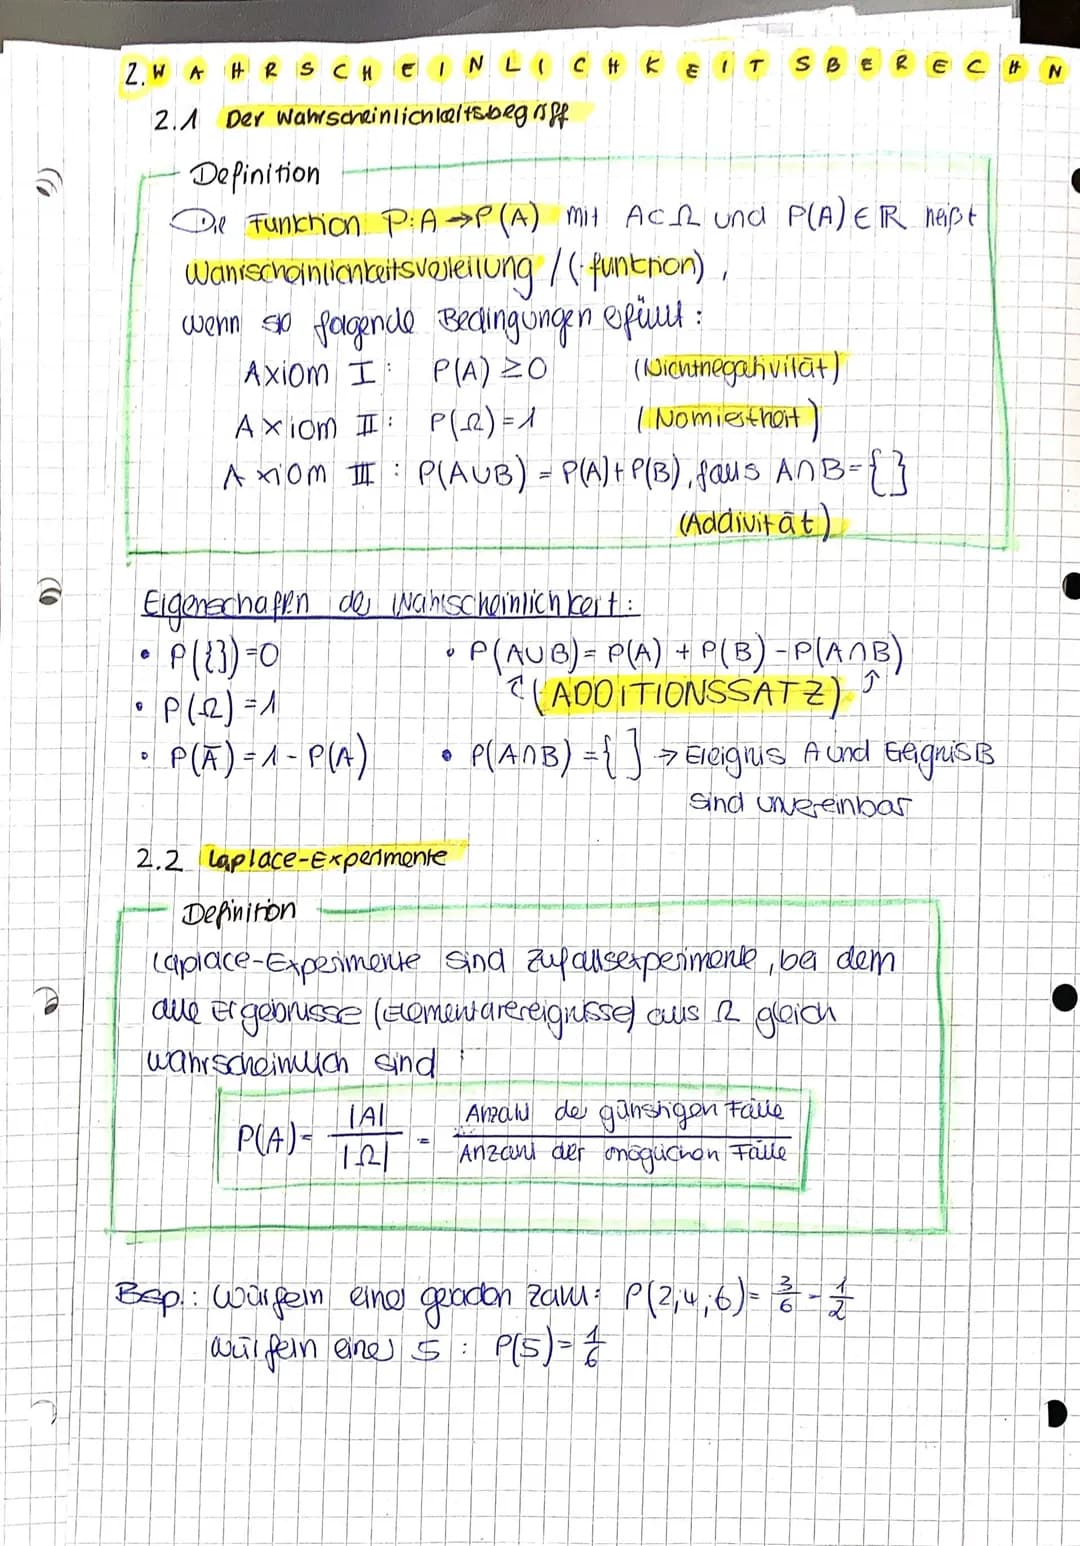 2. WAHRSCHEINLICHKEITSBERECHN
2.1 Der Wahrscheinlichkeitsbegriff
Definition
Die Funktion P: A → P(A) mit A⊂Ω und P(A)∈ℝ heißt
Wahrscheinlichkeitsverteilung / (-funktion),
wenn sie folgende Bedingungen erfüllt:
Axiom I: P(A) ≥ 0 (Nichtnegativität)
Axiom II: P(Ω) = 1 (Nomiertheit)
Axiom III: P(A∪B) = P(A) + P(B), falls A∩B = { }
(Addivität)
Eigenschaften der Wahrscheinlichkeit:
• P({}) = 0 • P(A∪B) = P(A) + P(B) - P(A∩B)
↑ (ADDITIONSSATZ) ↑
• P(Ω) = 1
• P(A̅) = 1 - P(A) • P(A∩B) = { } → Ereignis A und Ereignis B
sind unvereinbar
2.2 Laplace-Experimente
Definition
Laplace-Experimente sind Zufallsexperimente, bei dem
alle Ergebnisse (Elementarereignisse) aus Ω gleich
wahrscheinlich sind :
P(A) = |A| / |Ω| = Anzahl der günstigen Fälle / Anzahl der möglichen Fälle
Bsp.: Würfeln einer geraden Zahl: P(2,4,6) = 3/6 = 1/2
Würfeln einer 5 : P(5) = 1/6